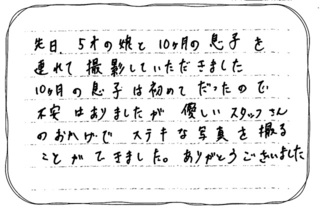 先日、5才の娘と10ヶ月の息子を
連れて撮影していただきました
10ヶ月の息子は初めてだったので
不安はありましたが優しいスタッフさん
のおかげでステキな写真を撮る
ことができました。ありがとうございました